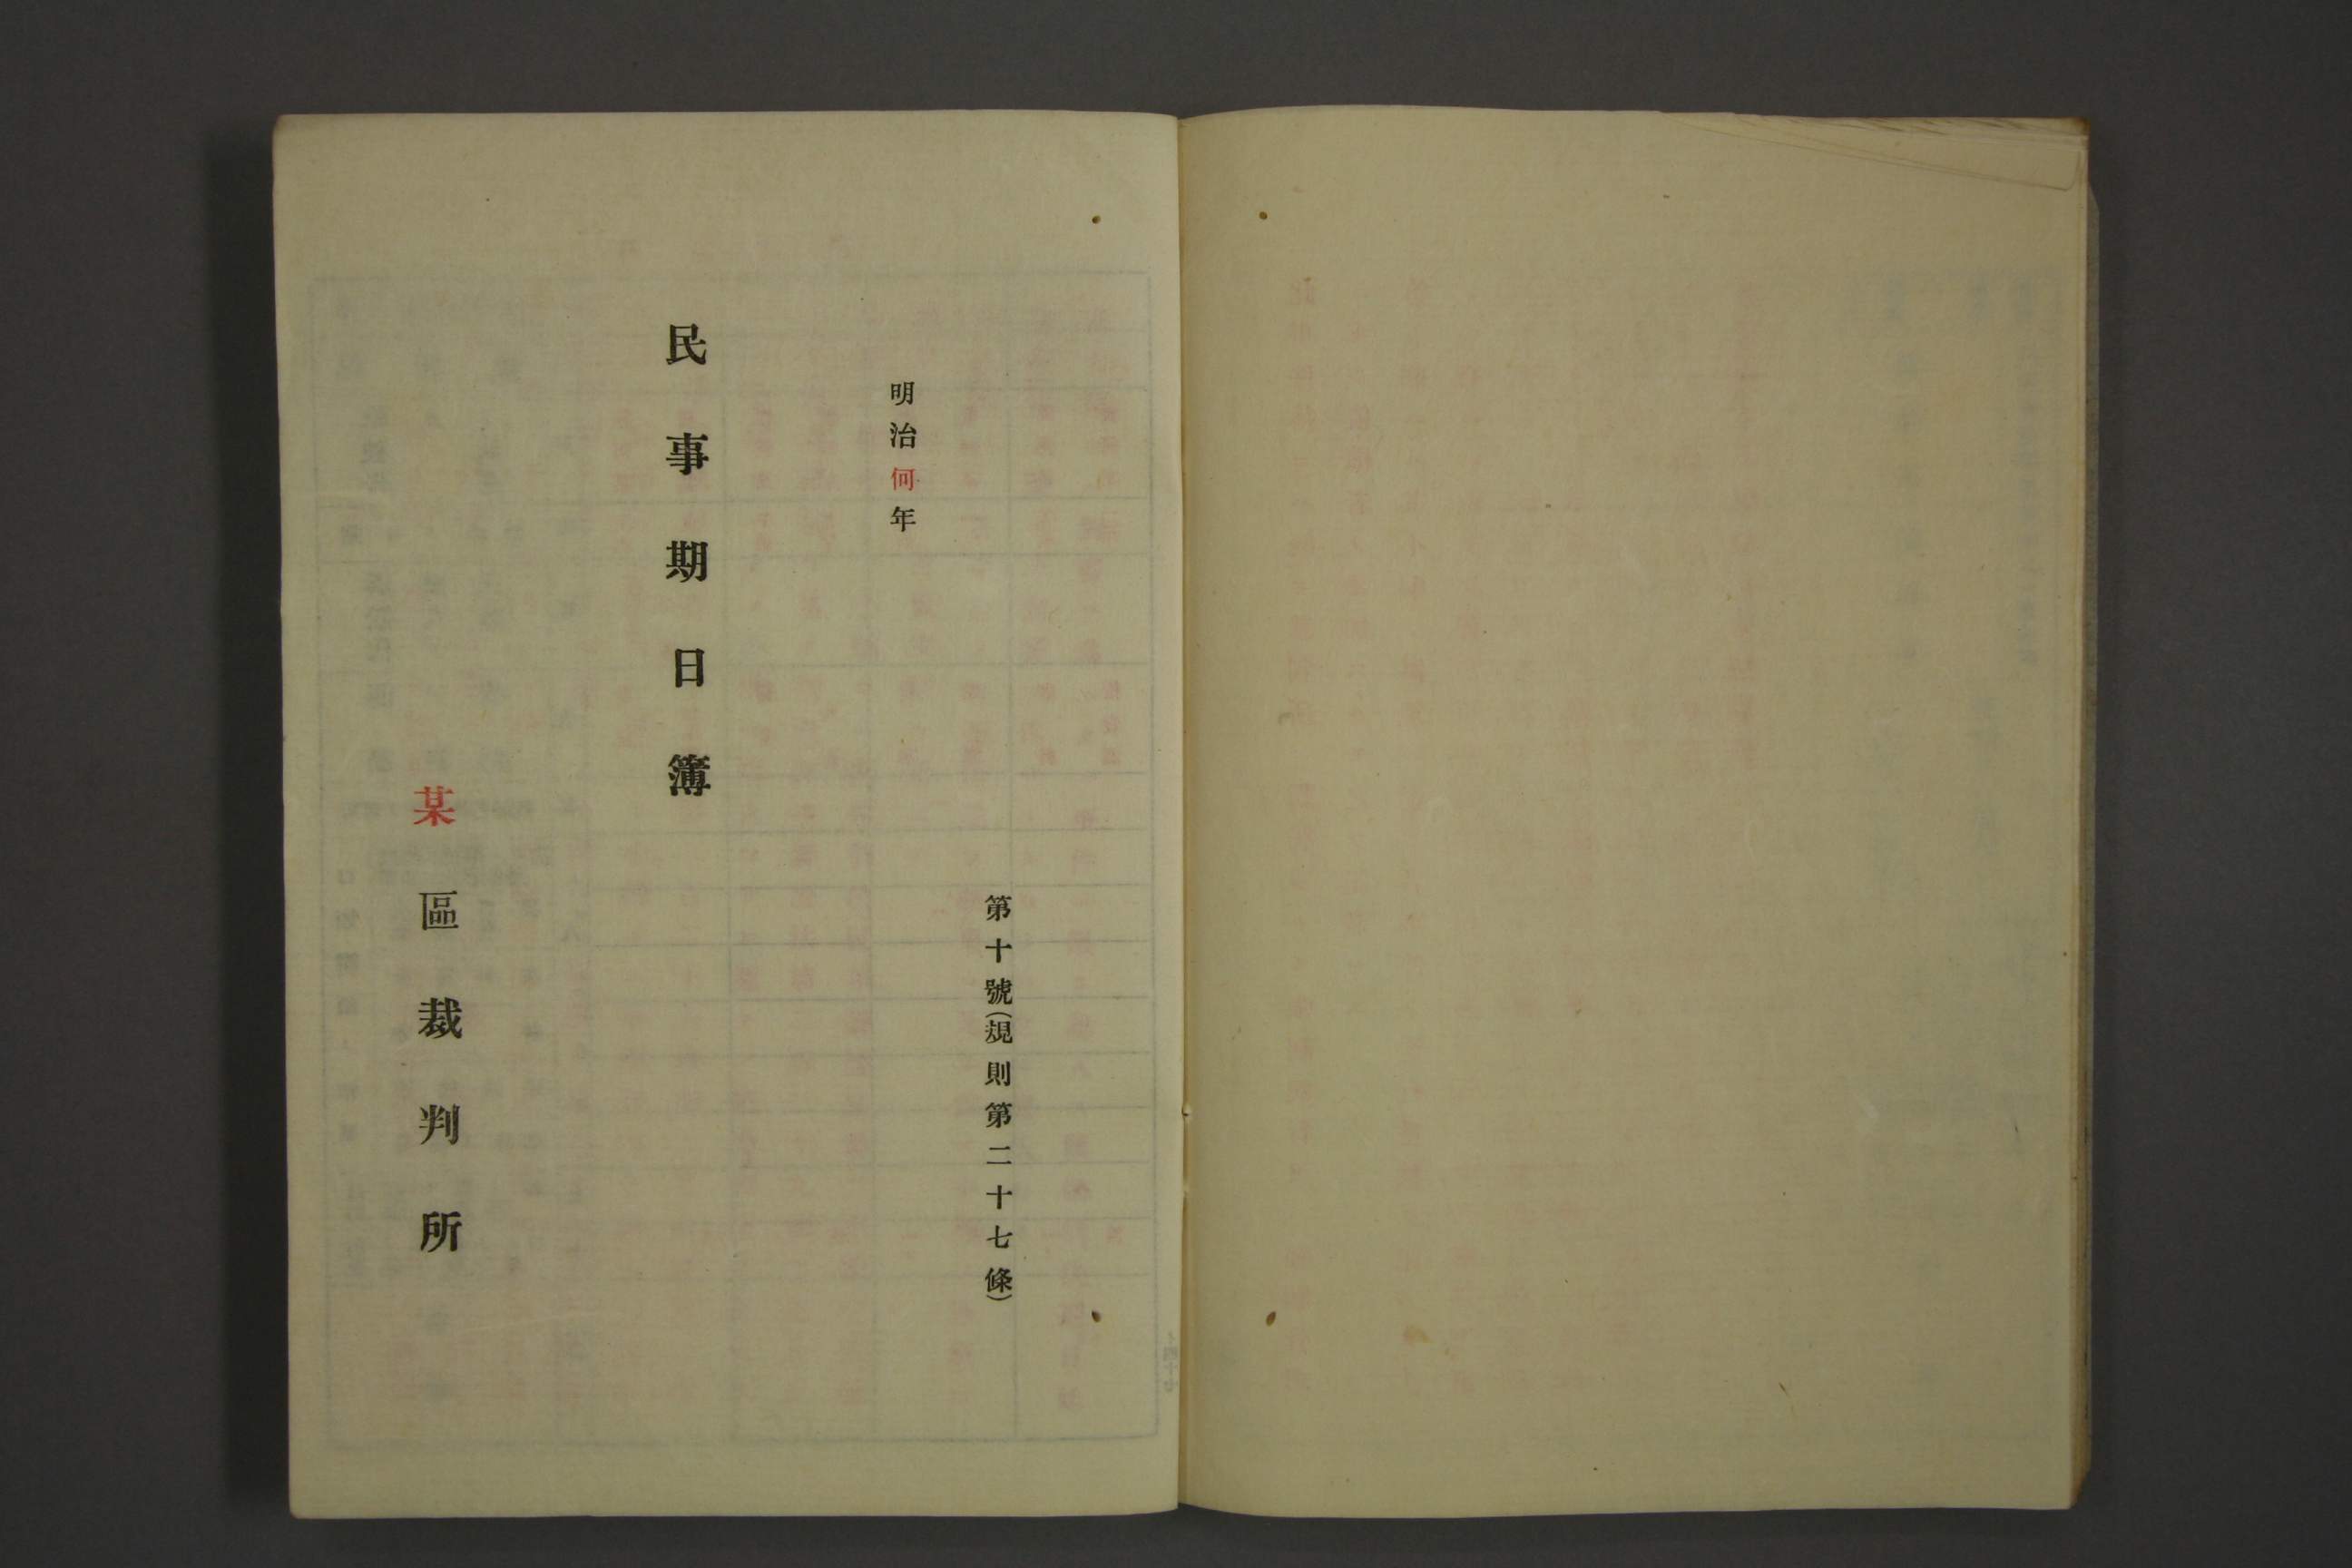 第十號(規則第二十七條)
明治何年
民事期日簿
某區裁判所